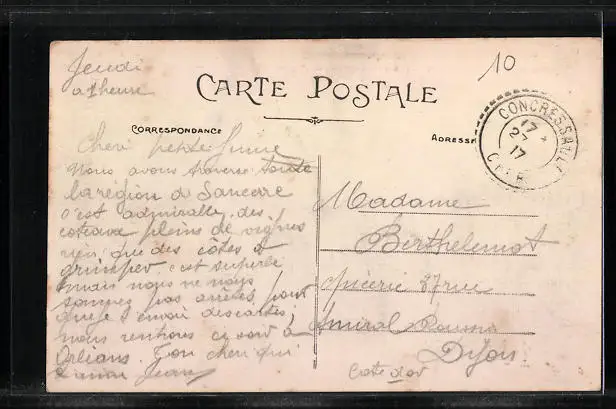 Jeudi
a 1 heure
10
CARTE POSTALE
CORRESPONDANCE
ADRESSE
CONCRESSAULT
17
27
17
CHER
Cheri petite
Nous avons traversé toute
la région de Sancerre
c'est admirable des
coteaux pleins de vignes
rien que des côtes à
grimper c'est superbe
mais nous ne nous
sommes pas arrêtés pour
que je t'envoi des cartes,
nous rentrons ce soir à
Orléans. Ton cheri qui
t'aime Jean
Madame
Berthelemot
épicerie 37 rue
Amiral Roussin
Dijon
Cote d'or